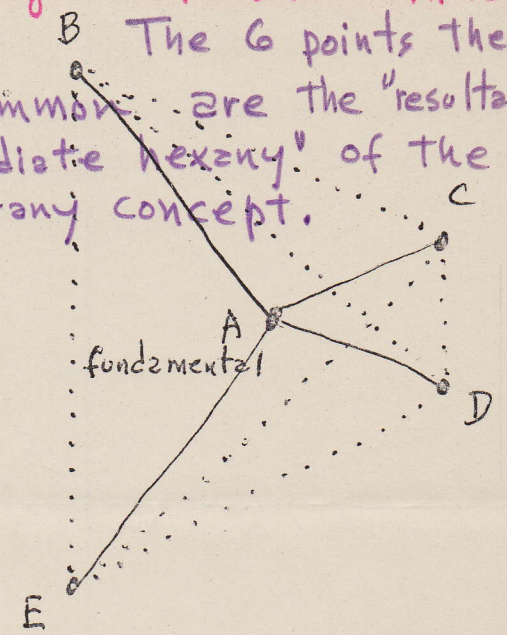 B
The 6 points the
mmon are the "resulta
diate hexany" of the
any concept.
C
A
fundamental
D
E